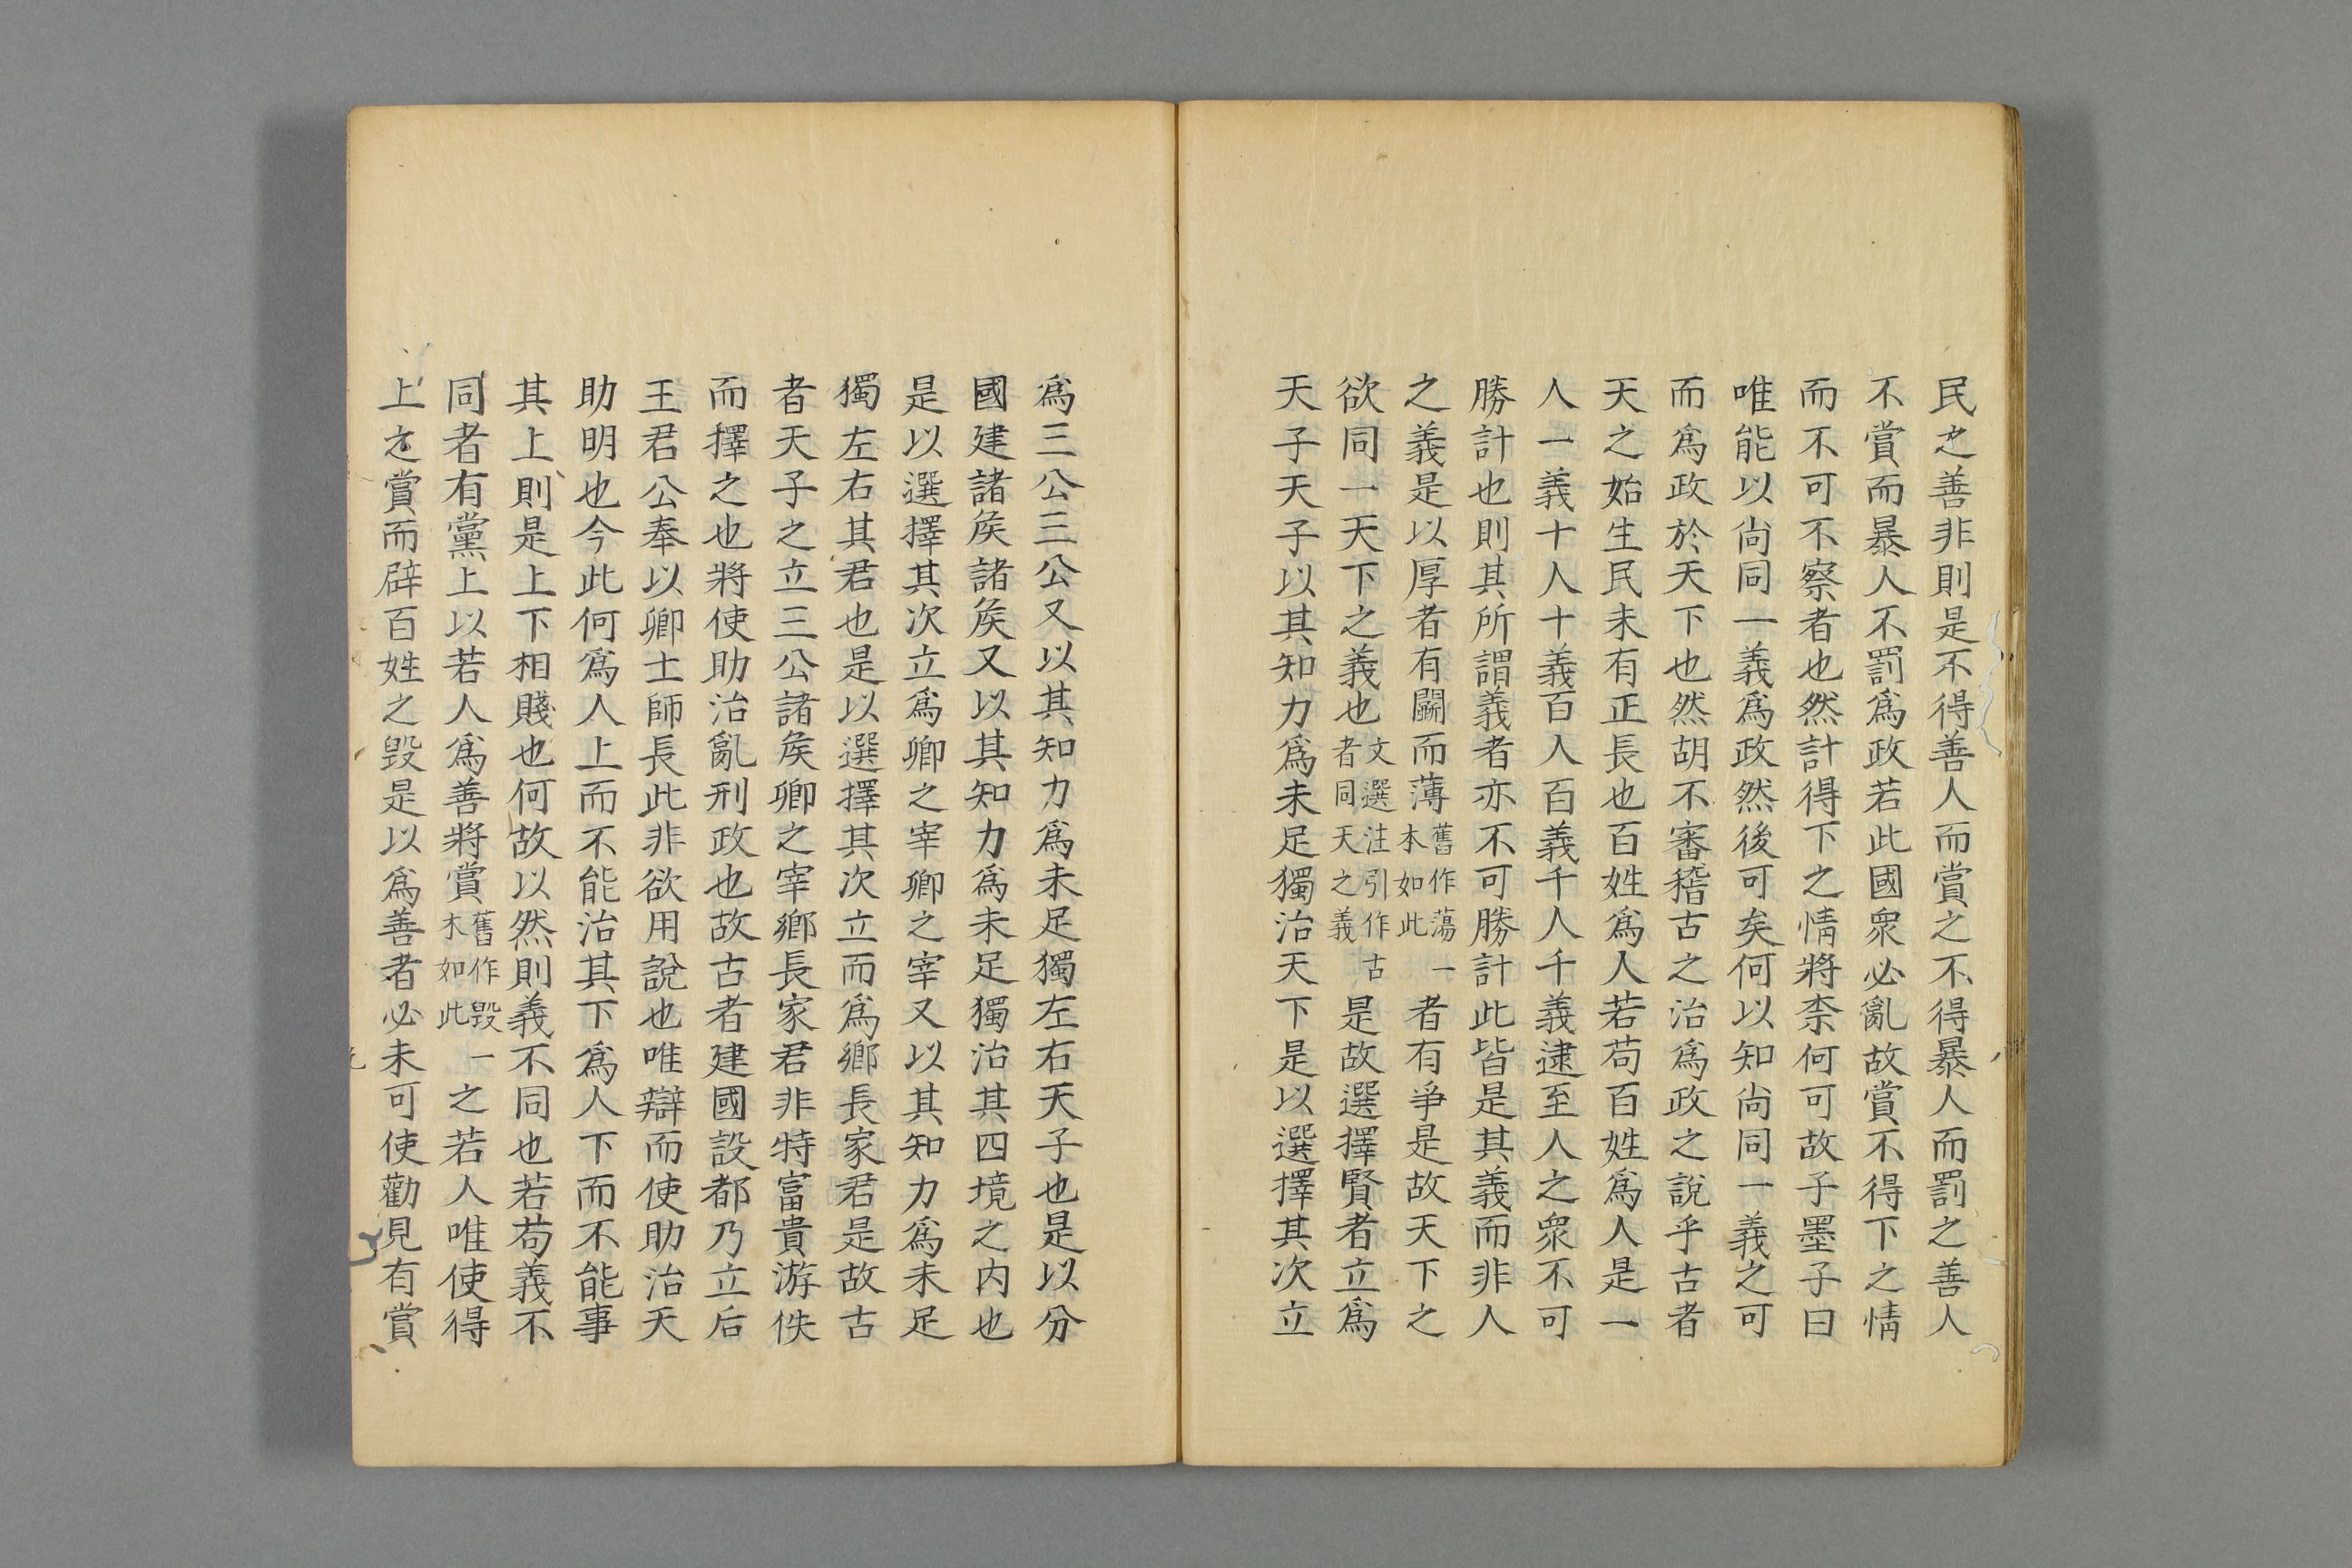 民之善非則是不得善人而賞之不得暴人而罰之善人
不賞而暴人不罰爲政若此國衆必亂故賞不得下之情
而不可不察者也然計得下之情將柰何可故子墨子曰
唯能以尚同一義爲政然後可矣何以知尚同一義之可
而爲政於天下也然胡不審稽古之治爲政之說乎古者
天之始生民未有正長也百姓爲人若苟百姓爲人是一
人一義十人十義百人百義千人千義逮至人之衆不可
勝計也則其所謂義者亦不可勝計此皆是其義而非人
之義是以厚者有鬭而薄舊作蕩一本如此者有爭是故天下之
欲同一天下之義也文選注引作古者同天之義是故選擇賢者立爲
天子天子以其知力爲未足獨治天下是以選擇其次立
爲三公三公又以其知力爲未足獨左右天子也是以分
國建諸矦諸矦又以其知力爲未足獨治其四境之内也
是以選擇其次立爲卿之宰卿之宰又以其知力爲未足
獨左右其君也是以選擇其次立而爲鄉長家君是故古
者天子之立三公諸矦卿之宰鄉長家君非特富貴游佚
而擇之也將使助治亂刑政也故古者建國設都乃立后
王君公奉以卿士師長此非欲用說也唯辯而使助治天
助明也今此何爲人上而不能治其下爲人下而不能事
其上則是上下相賤也何故以然則義不同也若苟義不
同者有黨上以若人爲善將賞舊作毀一本如此之若人唯使得
上之賞而辟百姓之毀是以爲善者必未可使勸見有賞